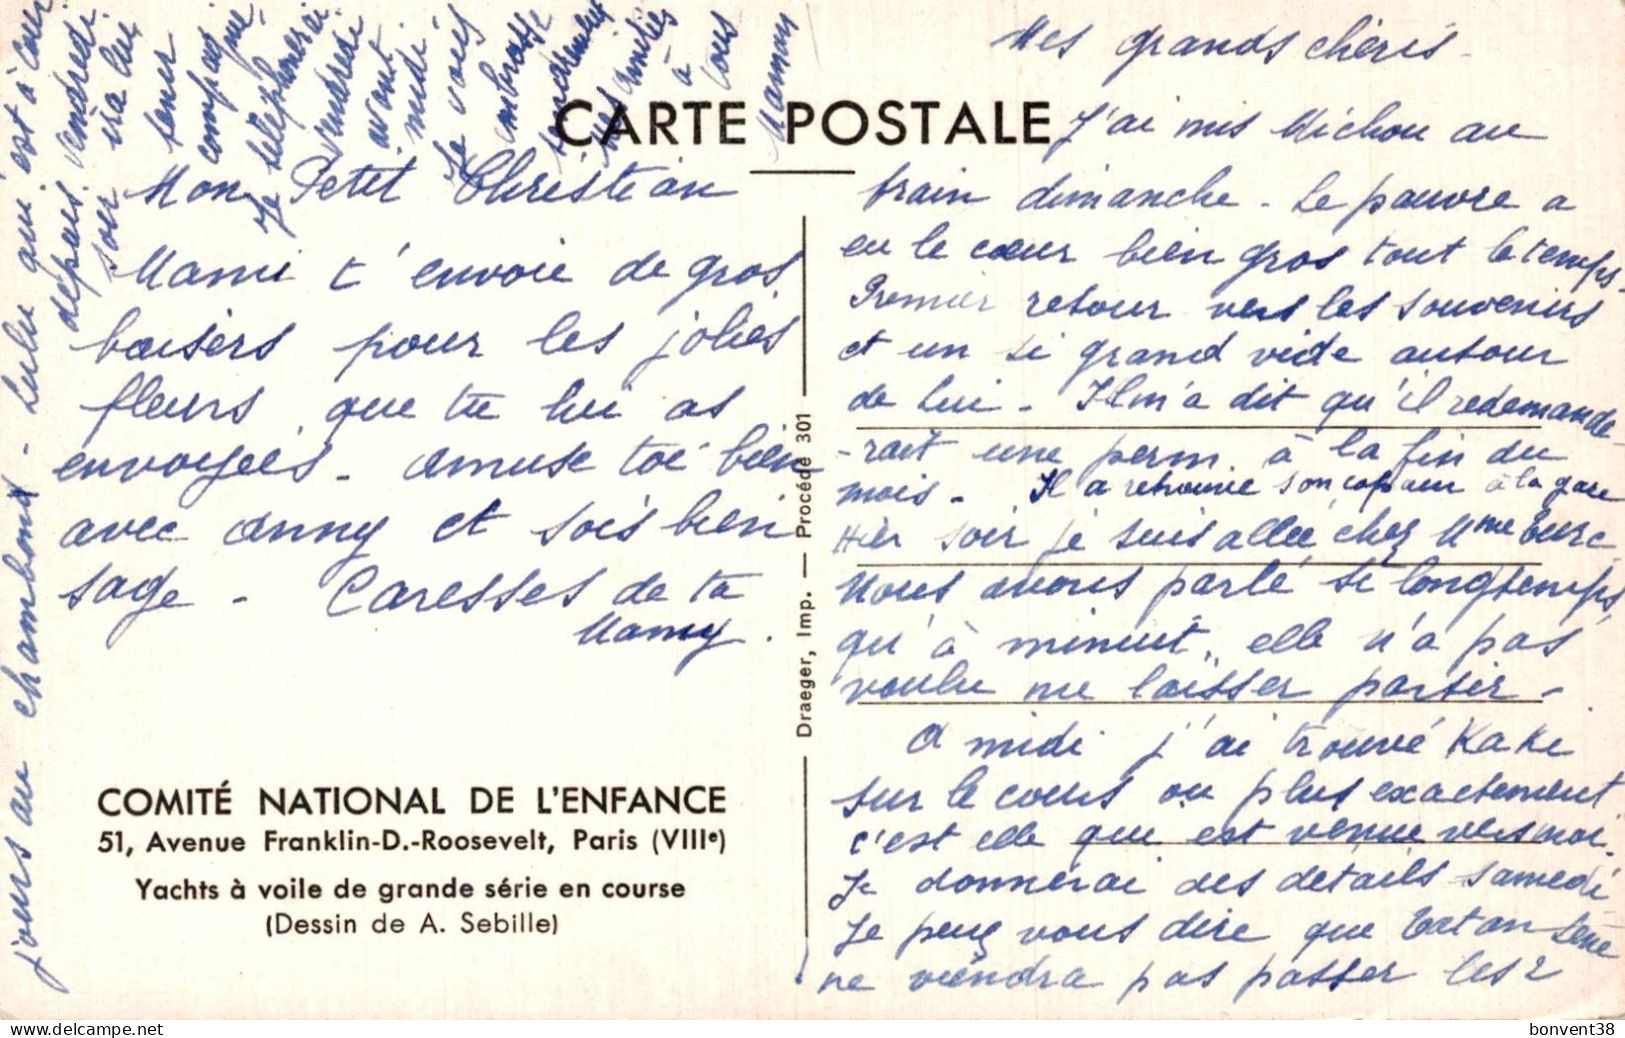 CARTE POSTALE
Mon Petit Christian
Mami t'envoie de gros
baisers pour les jolies
fleurs que tu lui as
envoyées. amuse toi bien
avec anny et sois bien
sage - Caresses de ta
Mamy.
COMITÉ NATIONAL DE L'ENFANCE
51, Avenue Franklin-D.-Roosevelt, Paris (VIIIe)
Yachts à voile de grande série en course
(Dessin de A. Sebille)
Draeger, Imp. — Procédé 301
Mes grands chéris -
J'ai mis Michou au
train dimanche - Le pauvre a
eu le cœur bien gros tout le temps.
Premier retour vers les souvenirs
et un si grand vide autour
de lui - Il m'a dit qu'il redemande-
-rait une perm à la fin du
mois - Il a retrouvé son copain à la gare
Hier soir je suis allée chez Mme
Nous avons parlé si longtemps
qu'à minuit, elle n'a pas
voulu me laisser partir -
A midi j'ai trouvé Kake
sur le cours ou plus exactement
c'est elle qui est venue vers moi.
Je donnerai des détails samedi
Je peux vous dire que
ne viendra pas passer les 2
jours au chambon - Lulu qui est à cour
depuis vendredi
soir ira lui
tenir
compagnie,
Je téléphonerai
vendredi
avant
midi.
Je vous
embrasse
tendrement
Mes amitiés
à
tous
Maman
bonvent38